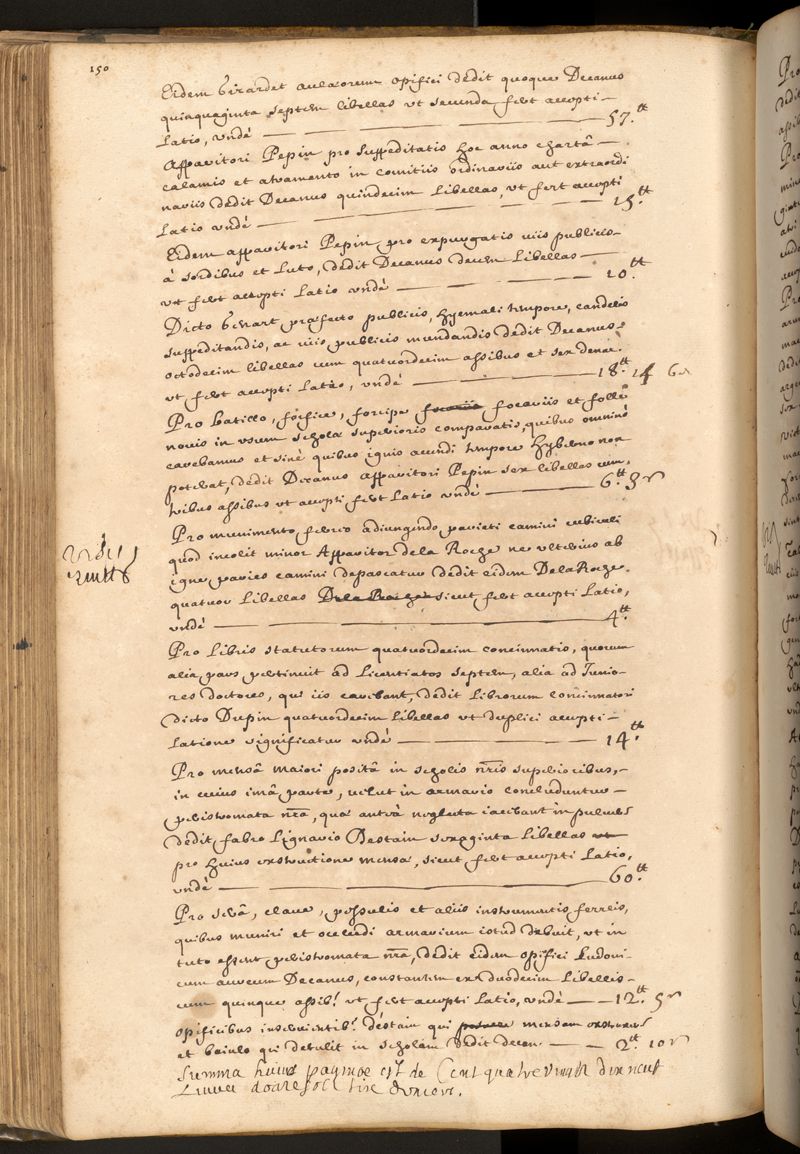 150
Eidem Girardet aulaeorum opifici dedit quoque Decanus
quinquaginta septem libellas ut secunda fert accepti-
latio, undè 57.tt
Apparitori Pepin pro suppeditatis hoc anno chartâ
calamis et atramento in comitiis ordinariis aut extraordi
nariis dedit Decanus quindecim Libellas, ut fert accepti
Latio undè 15.tt
Eidem apparitori Pepin, pro expurgatis viis publicis
à sordibus et Luto, dedit Decanus decem Libellas
ut fert accepti Latio undè 10.tt
Dicto praefecto publicis, hyemali tempore, candelis
suppeditandis, ac viis publicis mundandis dedit Decanus
octodecim libellas cum quatuordecim assibus et sex denar.
ut fert accepti Latio, undè 18.tt 14 6
Pro batillo, forfice, forcipe focariis et folle
novis in usum scholae superioris comparatis, quibus omninò
carebamus et sinè quibus ignis accendi tempore hyberno non
poterat, dedit Decanus Apparitori Pepin sex libellas cum
tribus assibus ut accepti fert Latio undè 6.tt 3
Pro munimento ferreo adiungendo parieti camini cubiculi
quod incolit minor Apparitor dela Roche ne ulterius ab
igne paries camini depascatur dedit eidem DelaRoche
quatuor Libellas Dela Roche sicut fert accepti Latio,
undè 4.tt
Pro Libris statutorum quatuordecim concinnatis, quorum
alia pars pertinuit ad Licentiatos septem, alia ad Iunio-
res doctores, qui iis carebant, dedit Librorum concinnatori
dicto Dupin quatuordecim Libellas ut duplici accepti-
latione significatur undè 14.tt
Pro mensâ maiori positâ in scholis nris superioribus,
in cuius imâ parte, velut in armario concluduntur
peristromata nra, quae anteà neglecta iacebant in pulvere
dedit fabro Lignario Destain sexaginta Libellas ut
pro huius exstructione mensae, sicut fert accepti Latio,
undè 60.tt
Pro serâ, clave, pessulis et aliis instrumentis ferreis,
quibus muniri et occludi armarium istud debuit, ut in
tuto essent peristromata nra, dedit eidem opifici Ludovi-
cum aureum Decanus, constantem ex duodecim Libellis
cum quinque assib? ut fert accepti Latio, undè 12.tt 5
opificibus inservientib? destain qui mensam
et baiulo qui detulit in scholam dedit decan. 2.tt 10
Summa huius paginae est de Cent quatre vingt dix neuf